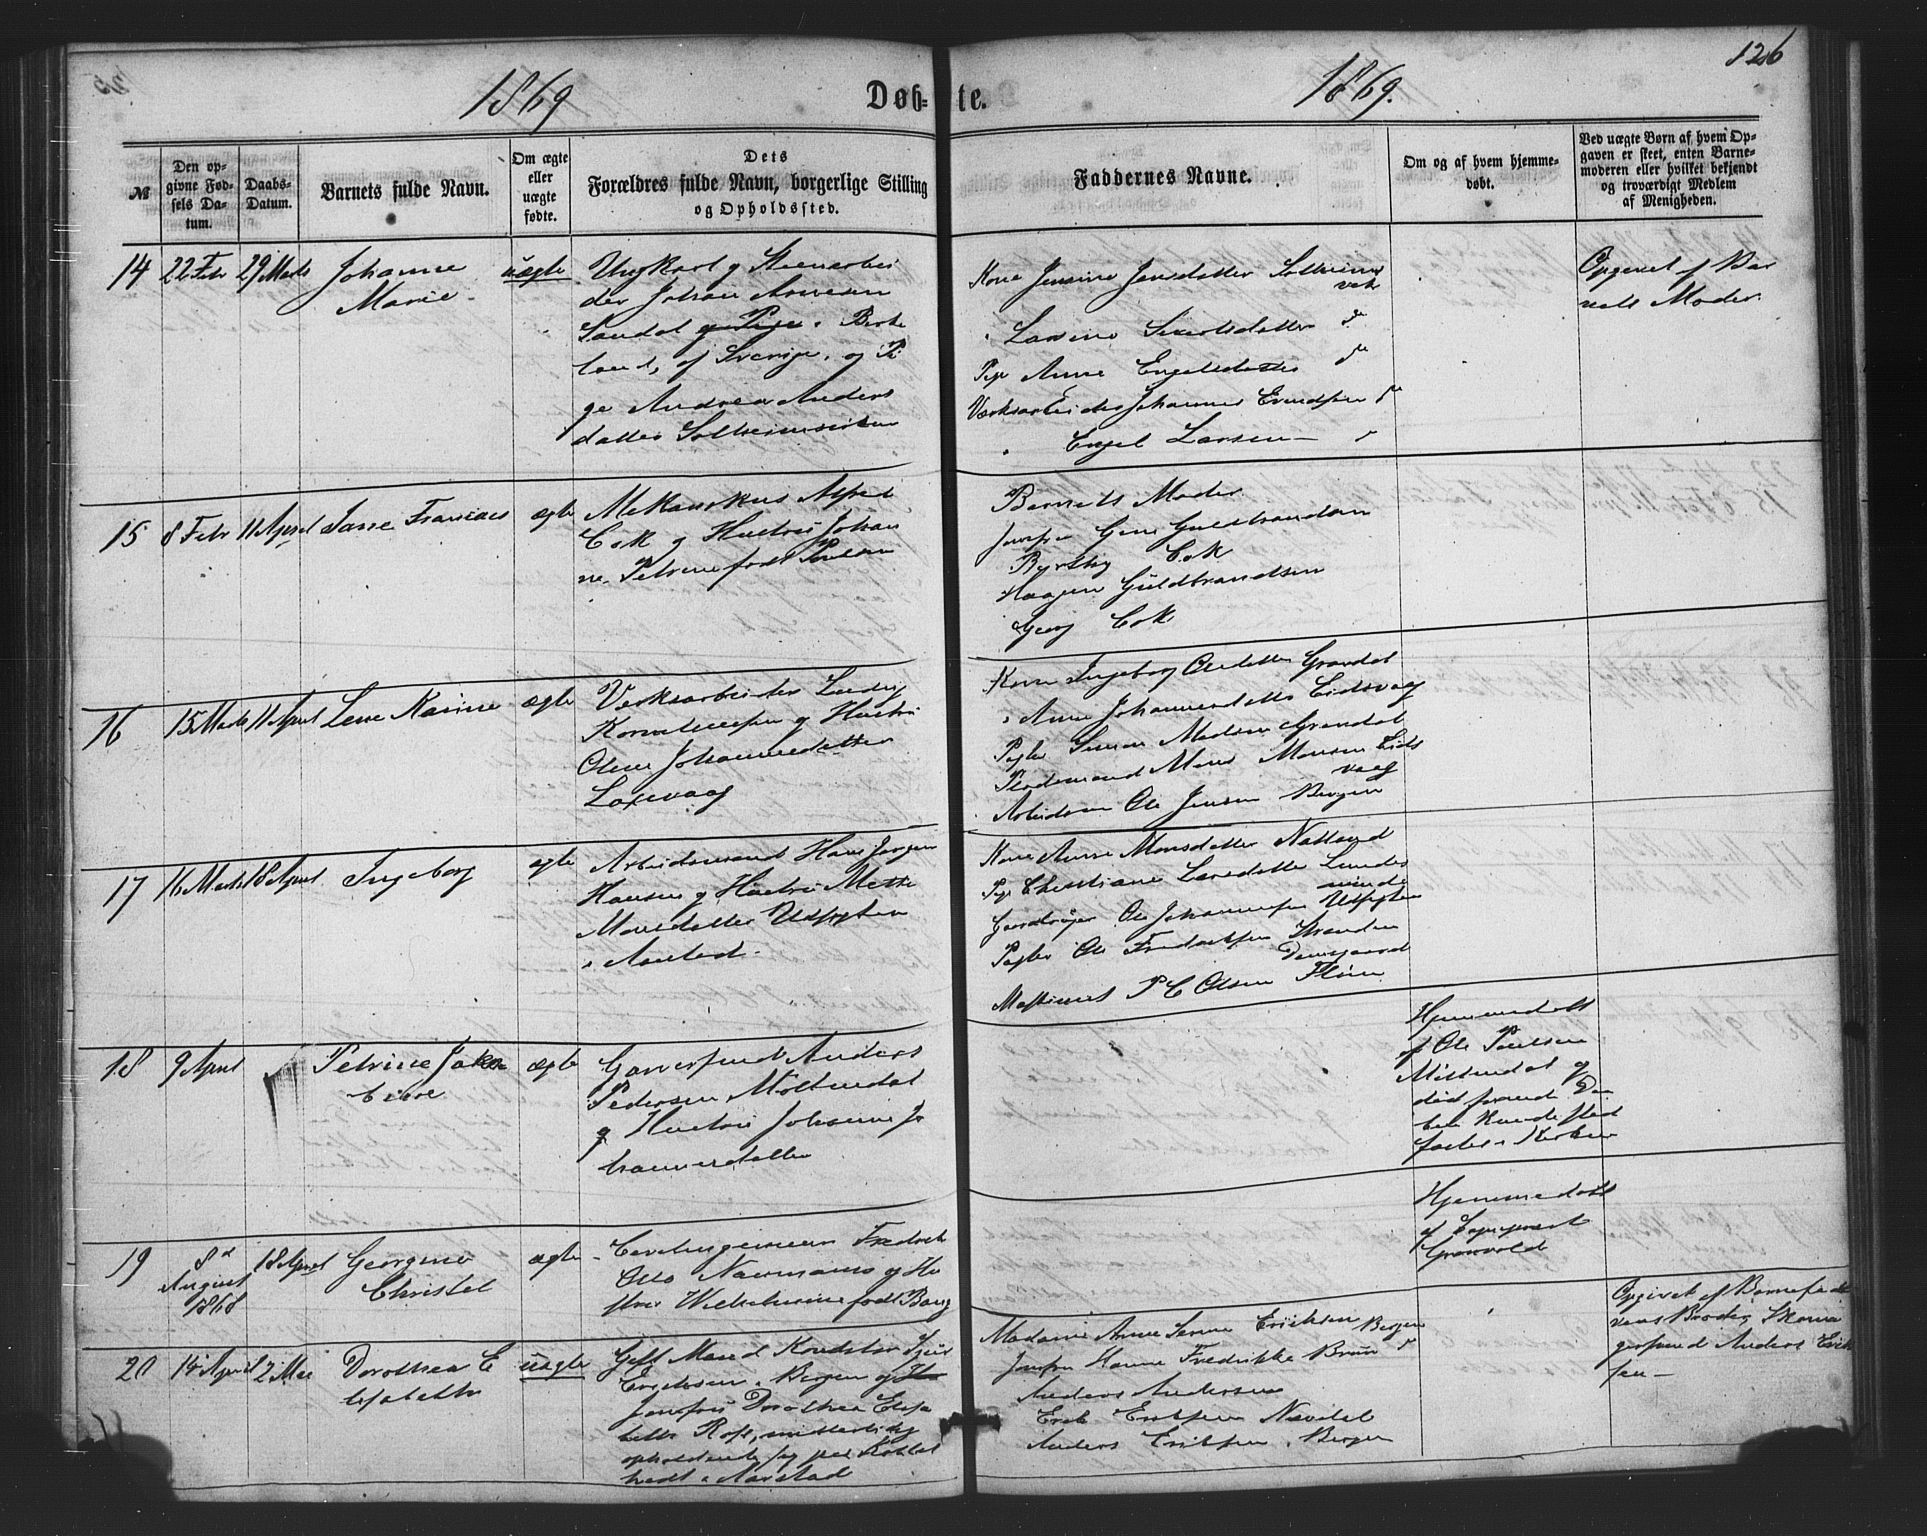 126
1869
Døb-
te.
1869.
№
Den op-
givne Fød-
sels Da-
tum.
Daabs-
Datum.
Barnets fulde Navn.
Om ægte
eller
uægte
fødte.
Dets
Forældres fulde Navn, borgerlige Stilling
og Opholdssted.
Faddernes Navne.
Om og af hvem hjemme-
døbt.
Ved uægte Børn af hvem Op-
gaven er skeet, enten Barne-
moderen eller hvilket bekjendt
og troværdigt Medlem
af Menigheden.
14
22 Febr
29 Marts
Johanne
Marie
uægte
Ungkarl og Steenarbei
der Johan Arnesen
Sandal og Pige
land, af Sverige, og Pi
ge Andrea Anders
datter Solheimsviken
Kone Jensine Jensdatter Solheims
vik
Larsine Siverts​datter do
Pige Anne Engelsdatter do
Værksarbeider Johannes Evindsen do
Engel Larsen
Opgivet af Bar
nets Moder
15
8 Febr
11 April
Jane Frances
ægte
Mekanikus Alfred
Cok og Hustru Johan
ne Petrine født Poulsen
Barnets Moder
Jomfru Gine Guldbrandsen
Cok
Haagen Guldbrandsen
Georg Cok
16
15 Marts
11 April
Lene Karine
ægte
Værksarbeider Ludvig
Korneliussen og Hustru
Oline Johannesdatter
Laxevaag
Kone Ingeborg Olsdatter Grøndal
Anne Johannesdatter Eidsvaag
Pige Simon Madsen Grøndal
Mons Monsen Eids
vaag
Arbeidsm Ole Jensen Bergen
17
16 Marts
18 April
Ingeborg
ægte
Arbeidsmand Hans Jørgen
Hansen og Hustru Mette
Monsdatter Udsigten
i Aarstad.
Kone Anne Monsdatter Natland
Pige Christiane Larsdatter Lundes
minde
Gaardbruger Ole Johannesen Udsigten
Ole Fredriksen Stranden
Damsgaard
Maskinist P C Olsen Fløien
18
9 April
Petrine Jako
bine
ægte
Garversvend Anders
Pedersen Møllendal
og Hustru Johanne Jo
hannesdatter
Hjemmedøbt
af Ole Poulsen
Møllendal og
død forend Daa
ben kunde sted
fæstes i Kirken
19
8d
August
1868
18 April
Georgine
Christel
ægte
Civilingenieur Fredrik
Otto Neumann og Hu
stru Wilhelmine født Bang
Hjemmedøbt
af Sogneprest
Grønvold
20
14 April
2 Mai
Dorothea E
lisabeth
uægte
Gift Mand Konditor Sjur
Ericksen, Bergen og
Jomfru Dorothea Elisa
beth Rofs, midlertidig
opholdende sig paa Kobbel
tvedt i Aarstad
Madame Anne Serine Ericksen Bergen
Jomfru Hanne Fredrikke Bruun do
Anders Andersen
Erik Eriksen Nævdal
Anders Eriksen, Bergen
Opgivet af Barnefade
rens Broder, Skoma
gersvend Anders Erik
sen